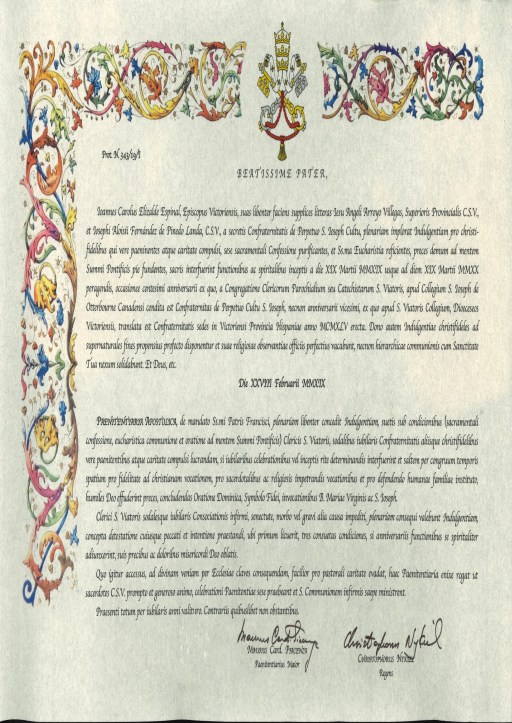 Prot. N. 343/19/I
BEATISSIME PATER,
Ioannes Carolus Elizalde Espinal, Episcopus Victoriensis, suas libenter faciens supplices litteras Iesu Angeli Arroyo Villegas, Superioris Provincialis C.S.V.,
et Iosephi Aloisii Fernández de Pinedo Landa, C.S.V., a secretis Confraternitatis de Perpetuo S. Ioseph Cultu, plenariam implorat Indulgentiam pro christi-
fidelibus qui vere paenitentes atque caritate compulsi, sese sacramentali Confessione purificantes, et Ss.ma Eucharistia reficientes, preces demum ad mentem
Summi Pontificis pie fundentes, sacris interfuerint functionibus ac spiritalibus inceptis a die XIX Martii MMXIX usque ad diem XIX Martii MMXX
peragendis, occasione centesimi anniversarii ex quo, a Congregatione Clericorum Parochialium seu Catechistarum S. Viatoris, apud Collegium S. Ioseph de
Otterbourne Canadensi condita est Confraternitas de Perpetuo Cultu S. Ioseph, necnon anniversarii vicesimi, ex quo apud S. Viatoris Collegium, Dioeceseos
Victoriensis, translata est Confraternitatis sedes in Victoriensi Provincia Hispaniae anno MCMXLV erecta. Dono autem Indulgentiae christifideles ad
supernaturales fines propensius profecto disponentur et suae religiosae observantiae officiis perfectius vacabunt, necnon hierarchicae communionis cum Sanctitate
Tua nexum solidabunt. Et Deus, etc.
Die XXVIII Februarii MMXIX
PAENITENTIARIA APOSTOLICA, de mandato Ss.mi Patris Francisci, plenariam libenter concedit Indulgentiam, suetis sub condicionibus (sacramentali
confessione, eucharistica communione et oratione ad mentem Summi Pontificis) Clericis S. Viatoris, sodalibus iubilaris Confraternitatis aliisque christifidelibus
vere paenitentibus atque caritate compulsis lucrandam, si iubilaribus celebrationibus vel inceptis rite determinandis interfuerint et saltem per congruum temporis
spatium pro fidelitate ad christianam vocationem, pro sacerdotalibus ac religiosis impetrandis vocationibus et pro defendendo humanae familiae instituto,
humiles Deo effuderint preces, concludendas Oratione Dominica, Symbolo Fidei, invocationibus B. Mariae Virginis ac S. Ioseph.
Clerici S. Viatoris sodalesque iubilaris Consociationis infirmi, senectute, morbo vel gravi alia causa impediti, plenariam consequi valebunt Indulgentiam,
concepta detestatione cuiusque peccati et intentione praestandi, ubi primum licuerit, tres consuetas condiciones, si anniversariis functionibus se spiritaliter
adiunxerint, suis precibus ac doloribus misericordi Deo oblatis.
Quo igitur accessus, ad divinam veniam per Ecclesiae claves consequendam, facilior pro pastorali caritate evadat, haec Paenitentiaria enixe rogat ut
sacerdotes C.S.V. prompto et generoso animo, celebrationi Paenitentiae sese praebeant et S. Communionem infirmis saepe ministrent.
Praesenti totum per iubilaris anni valituro. Contrariis quibuslibet non obstantibus.
Maurus Card. Piacenza Christophorus Nykiel
MAURUS CARD. PIACENZA CHRISTOPHORUS NYKIEL
Paenitentiarius Maior Regens